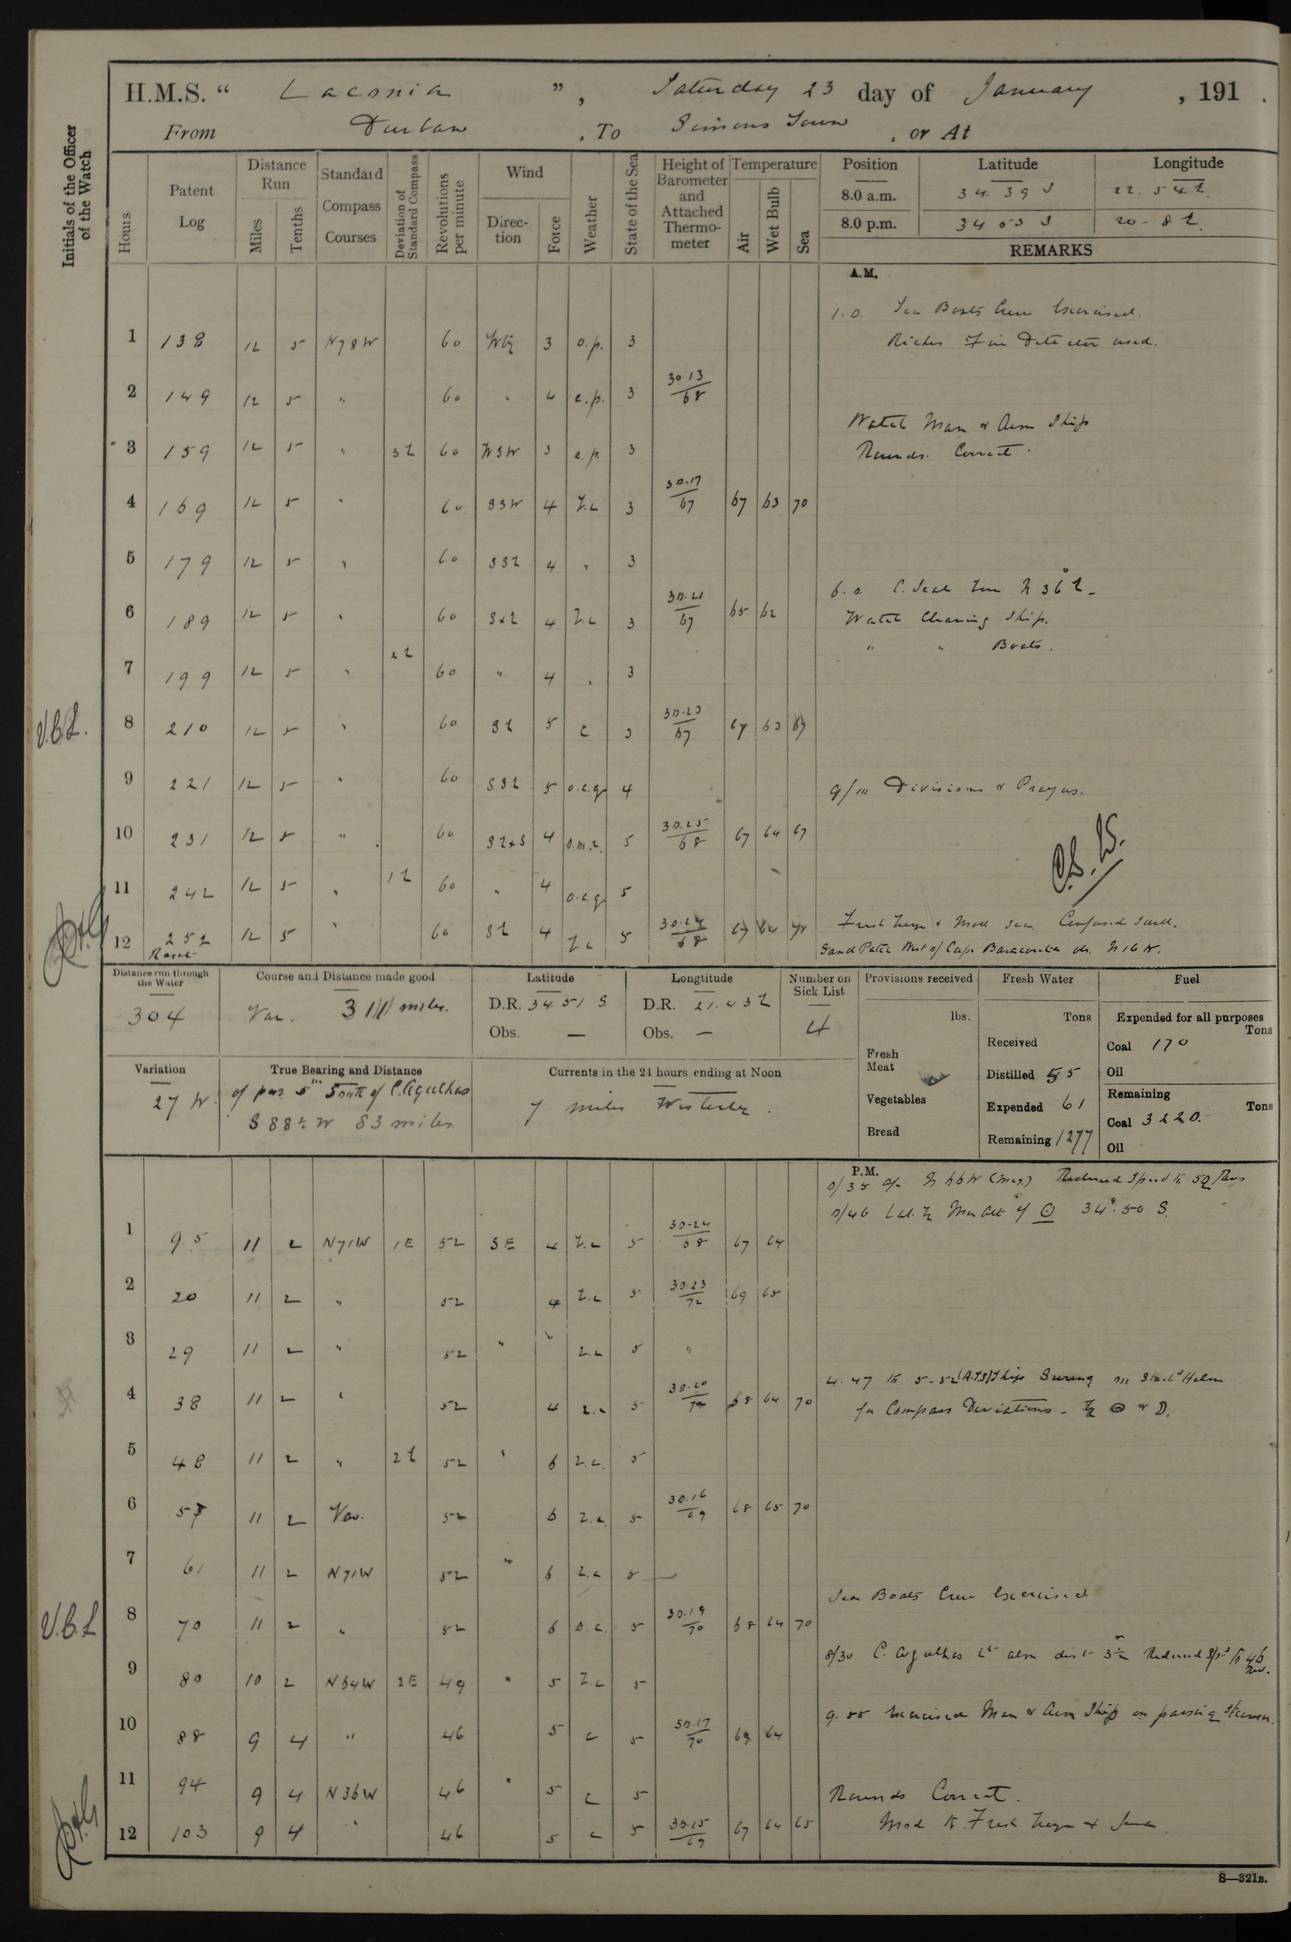 H.M.S. " Laconia ", Saturday 23 day of January, 191 .
From Durban, To Simons Town, or At
Initials of the Officer of the Watch
Hours
Patent Log
Distance Run
Miles
Tenths
Standard Compass Courses
Deviation of Standard Compass
Revolutions per minute
Wind
Direction
Force
Weather
State of the Sea
Height of Barometer and Attached Thermometer
Temperature
Air
Wet Bulb
Sea
Position Latitude Longitude
8.0 a.m. 34.39 S 22.54 E
8.0 p.m. 34 53 S 20. 8 E
REMARKS
A.M.
1.0. Sea Boats Crew Exercised.
Riches Fire Detector used.
1 138 12 5 N78W 60 3 o.p. 3
2 149 12 5 " 60 " 4 c.p. 3 30.13/68
Watch Man & Arm Ship
3 159 12 5 " 3E 60 WSW 3 c.p. 3
Rounds. Correct.
4 169 12 5 " 60 SSW 4 b.c 3 30.17/67 67 63 70
5 179 12 5 " 60 SSE 4 " 3
6.0.
6 189 12 5 " 60 SxE 4 b.c 3 30.21/67 65 62
Watch Cleaning Ship.
" " Boats.
7 199 12 5 " 2E 60 " 4 " 3
V.B.L.
8 210 12 5 " 60 SE 5 c 3 30.23/67 67 63 67
9 221 12 5 " 60 SSE 5 o.c.q 4
9/10 Divisions & Prayers.
10 231 12 5 " 60 SExS 4 5 30.25/68 67 64 67
11 242 12 5 " 1E 60 " 4 o.c.q 5
12 252 12 5 " 60 SE 4 b.c 5 30.24/68
Fresh breeze & Mod sea Confused Swell.
Sand Patch West of Cape Barracouta N16W.
Distance run through the Water
304
Course and Distance made good
Var. 311 miles.
Latitude
D.R. 34.51 S
Obs. —
Longtitude
D.R. 21.43 E
Obs. —
Number on Sick List
4
Provisions received
lbs.
Fresh Meat
Vegetables
Bread
Fresh Water
Tons
Received
Distilled 55
Expended 61
Remaining 1277
Fuel
Expended for all purposes Tons
Coal 170
Oil
Remaining Tons
Coal 3220.
Oil
Variation
27 W.
True Bearing and Distance
of pos. 5m South of C. Agulhas
S 88½ W 83 miles
Currents in the 24 hours ending at Noon
7 miles Westerly.
P.M.
0/35 a/c N66W (mag) Reduced Speed to 52 Revs
0/46 Lat. by Mer Alt of 34°.50 S.
1 9.5 11 2 N71W 1E 52 SE 4 b.c 5 30.24/68 67 64
2 20 11 2 " 52 4 b.c 5 30.23/72 69 65
3 29 11 2 " 52 " " b.c 5 "
4.47 to 5.52 (A.T.S) Ships Swung on Starbd Helm
4 38 11 2 " 52 4 b.c 5 30.20/70 68 64 70
for Compass Deviations
5 48 11 2 " 2E 52 " 6 b.c. 5
6 57 11 2 Var. 52 6 b.c. 5 30.16/69 68 65 70
7 61 11 2 N71W 52 " 6 b.c 5
Sea Boats Crew Exercised
V.B.L
8 70 11 2 " 52 6 o.c. 5 30.19/70 68 64 70
8/30 C. Agulhas Lt abm dist 3½ Reduced Spd to 46 Rev.
9 80 10 2 N54W 2E 49 " 5 b.c 5
Exercised Man & Arm Ship on passing steamer.
10 88 9 4 " 46 5 c 5 30.17/70 69 64
11 94 9 4 N36W 46 " 5 c 5
Rounds Correct.
12 103 9 4 " 46 5 c 5 30.15/69 67 64 65
Mod to Fresh breeze & Sea.
S—321B.